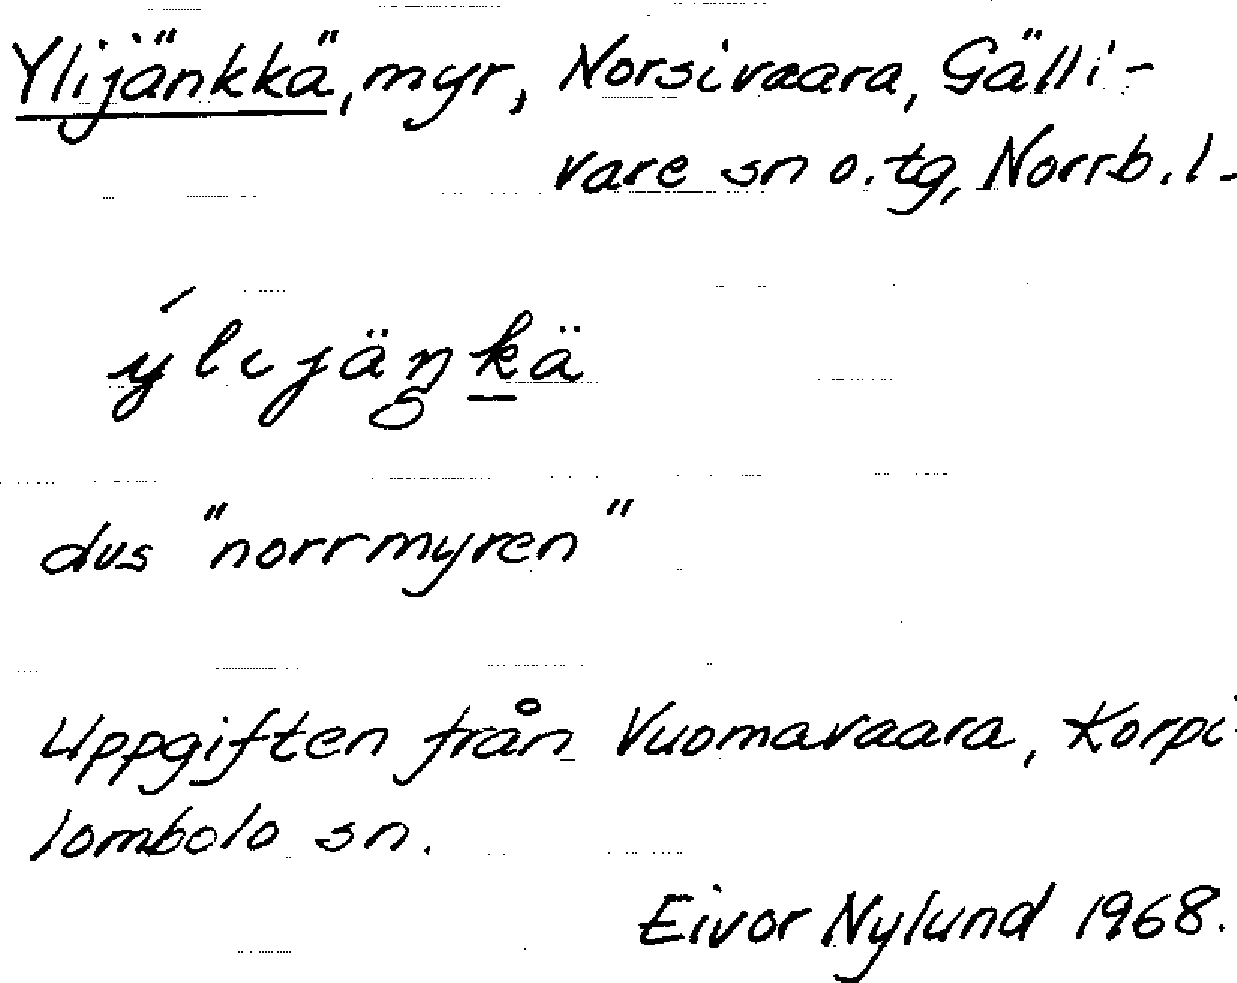 Ylijänkkä, myr, Norsivaara, Gälli-
vare sn o. tg, Norrb. l.
ýlijäŋkä
dvs "norrmyren"
Uppgiften från Vuomavaara, Korpi-
lombolo sn.
Eivor Nylund 1968.